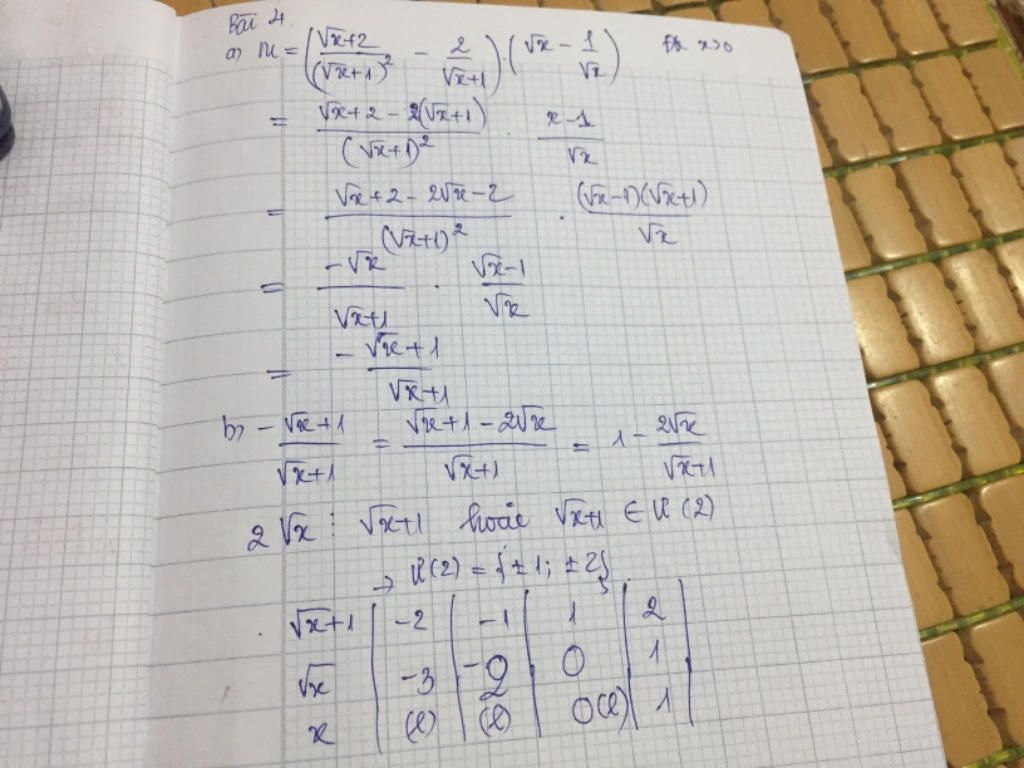 Bài 4.
a) M = ((√x+2)/(√x+1)² - 2/(√x+1)) · (√x - 1/√x) đk x>0
= (√x+2-2(√x+1))/(√x+1)² · (x-1)/√x
= (√x+2-2√x-2)/(√x+1)² · (√x-1)(√x+1)/√x
= -√x/(√x+1) · (√x-1)/√x
= (-√x+1)/(√x+1)
b) (-√x+1)/(√x+1) = (√x+1-2√x)/(√x+1) = 1 - 2√x/(√x+1)
2√x ⋮ √x+1 hoặc √x+1 ∈ Ư(2)
→ Ư(2) = {±1; ±2}
√x+1 | -2 | -1 | 1 | 2
√x | -3 | -2 | 0 | 1
x | (l) | (l) | 0(l) | 1